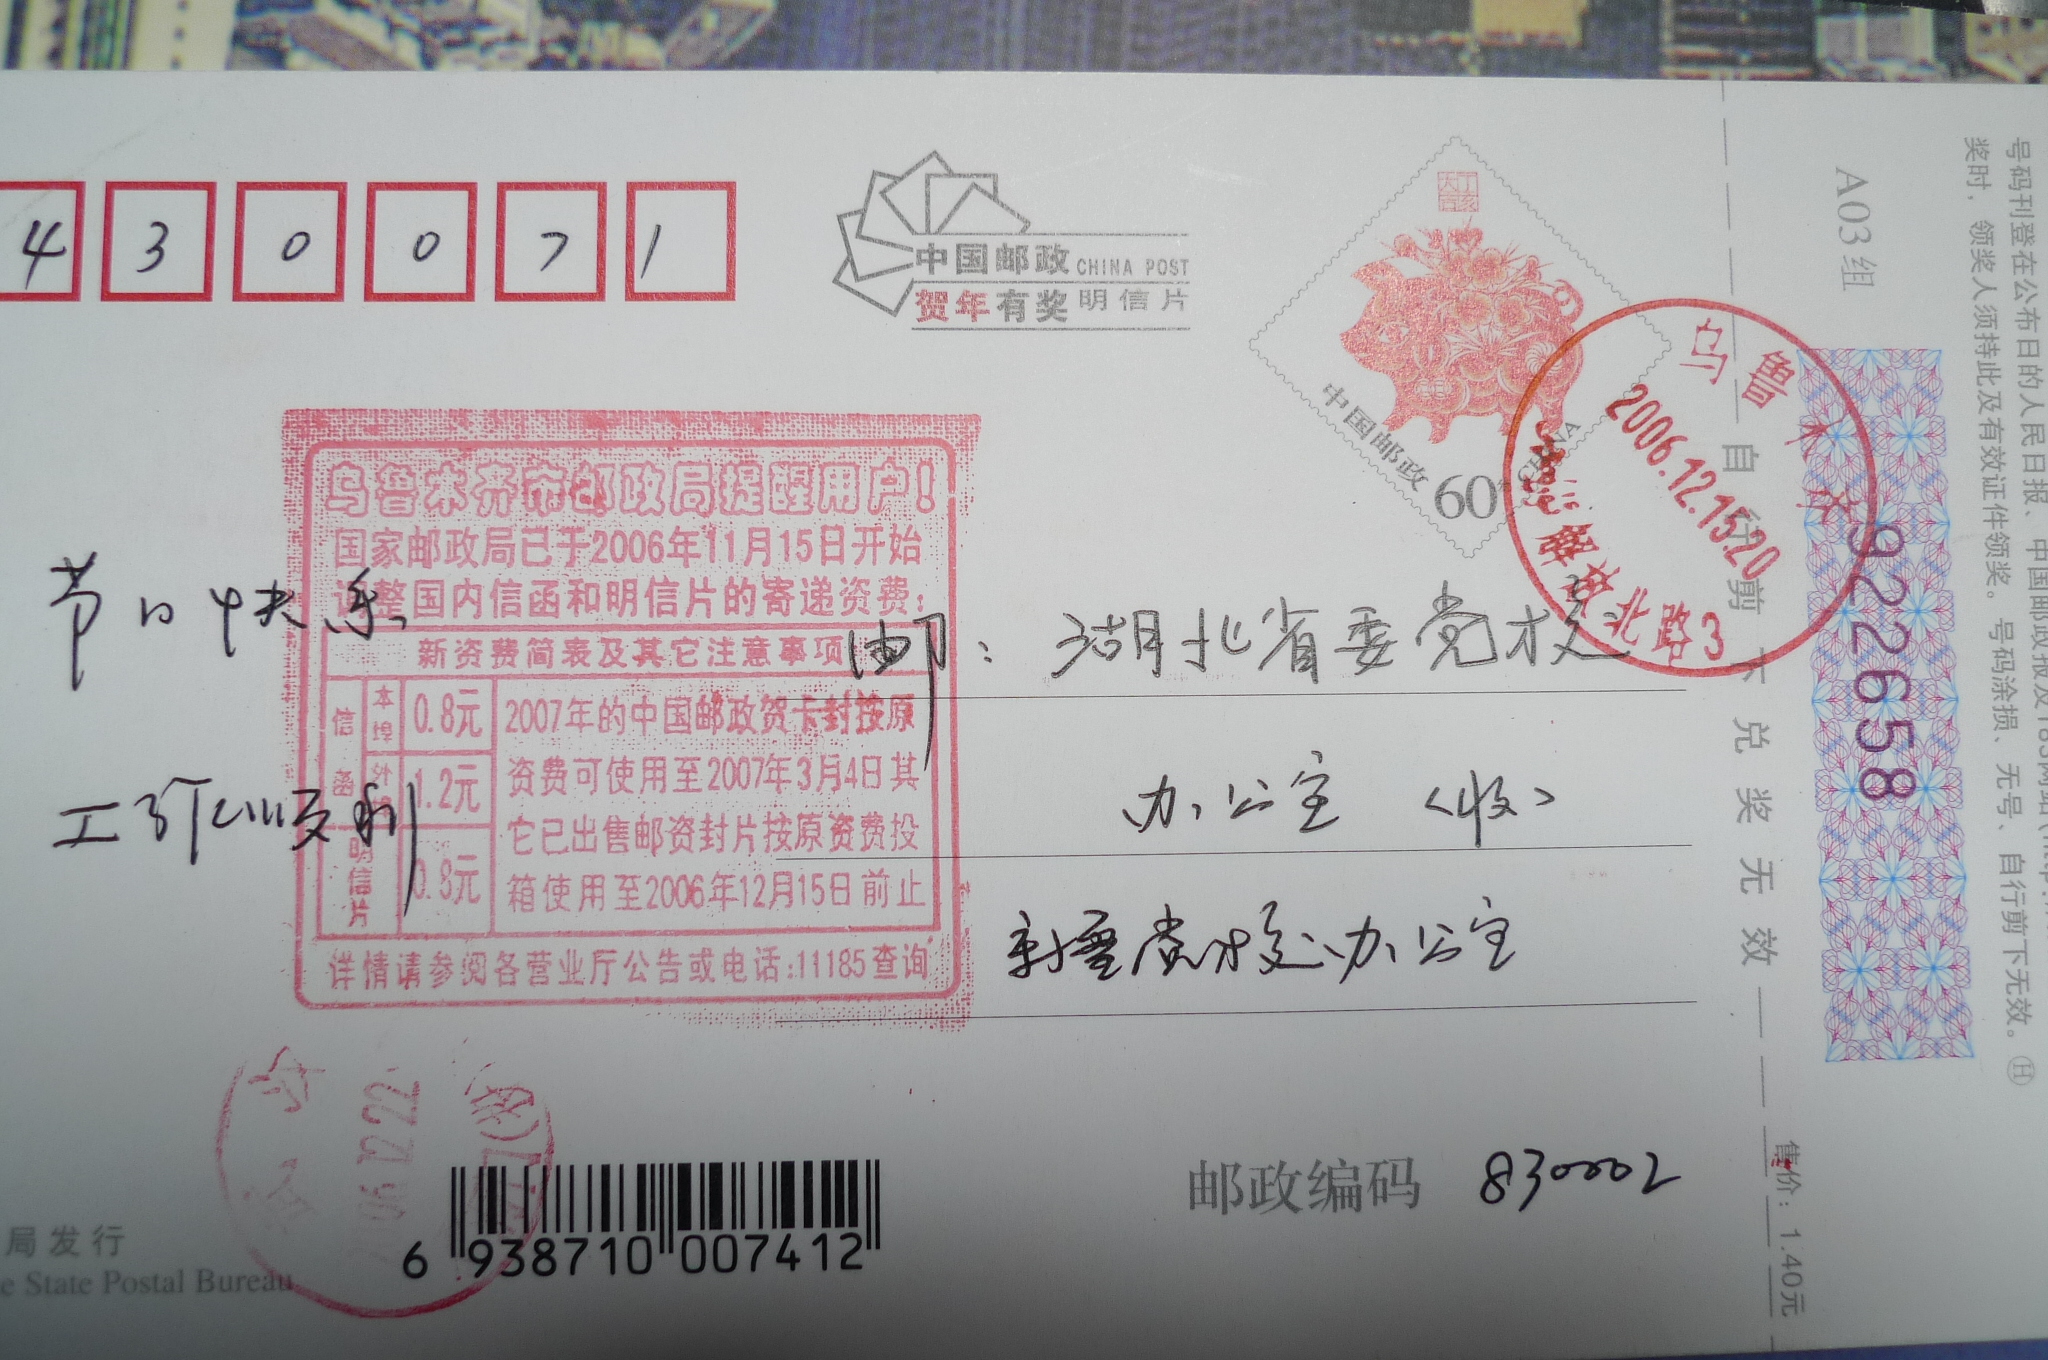 430071
中国邮政 CHINA POST
贺年有奖明信片
丁亥大吉
中国邮政 60分 CHINA
乌鲁木齐
2006.12.15.20
北路3
乌鲁木齐市邮政局提醒用户!
国家邮政局已于2006年11月15日开始
调整国内信函和明信片的寄递资费:
新资费简表及其它注意事项
信函 本埠 0.8元
外埠 1.2元
明信片 0.8元
2007年的中国邮政贺卡封按原
资费可使用至2007年3月4日其
它已出售邮资封片按原资费投
箱使用至2006年12月15日前止
详情请参阅各营业厅公告或电话:11185查询
节日快乐
工作顺利
邮: 湖北省委党校
办公室 (收)
新疆党校办公室
邮政编码 830002
06.12.22
6 938710 007412
局发行
e State Postal Bureau
自行剪下兑奖无效
售价: 1.40元
A03组
922658
号码刊登在公布日的人民日报、中国邮政报及183网站
奖时, 领奖人须持此及有效证件领奖。号码涂损、无号、自行剪下无效。 H